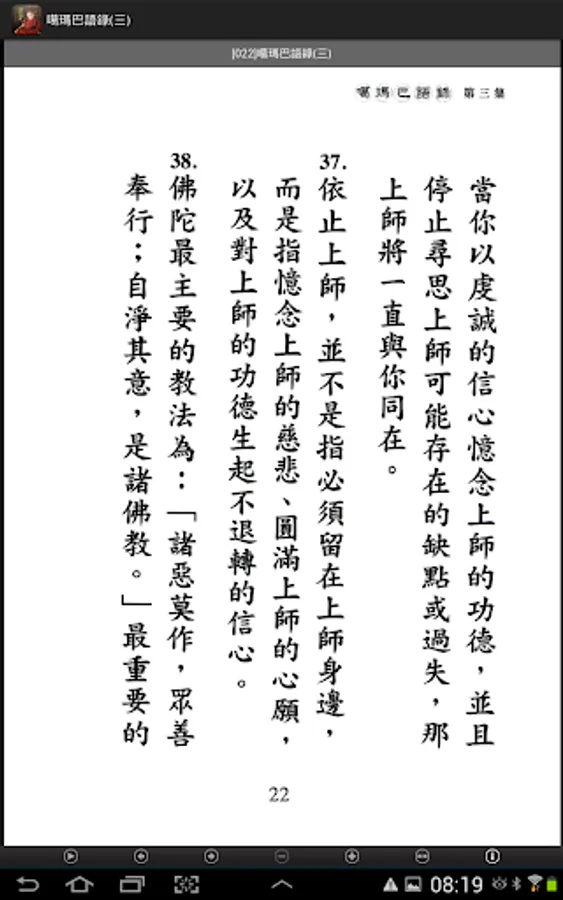 噶瑪巴語錄(三)
[022]噶瑪巴語錄(三)
噶瑪巴語錄 第三集
當你以虔誠的信心憶念上師的功德，並且
停止尋思上師可能存在的缺點或過失，那
上師將一直與你同在。
37.
依止上師，並不是指必須留在上師身邊，
而是指憶念上師的慈悲、圓滿上師的心願，
以及對上師的功德生起不退轉的信心。
38.
佛陀最主要的教法為：「諸惡莫作，眾善
奉行；自淨其意，是諸佛教。」最重要的
22
08:19